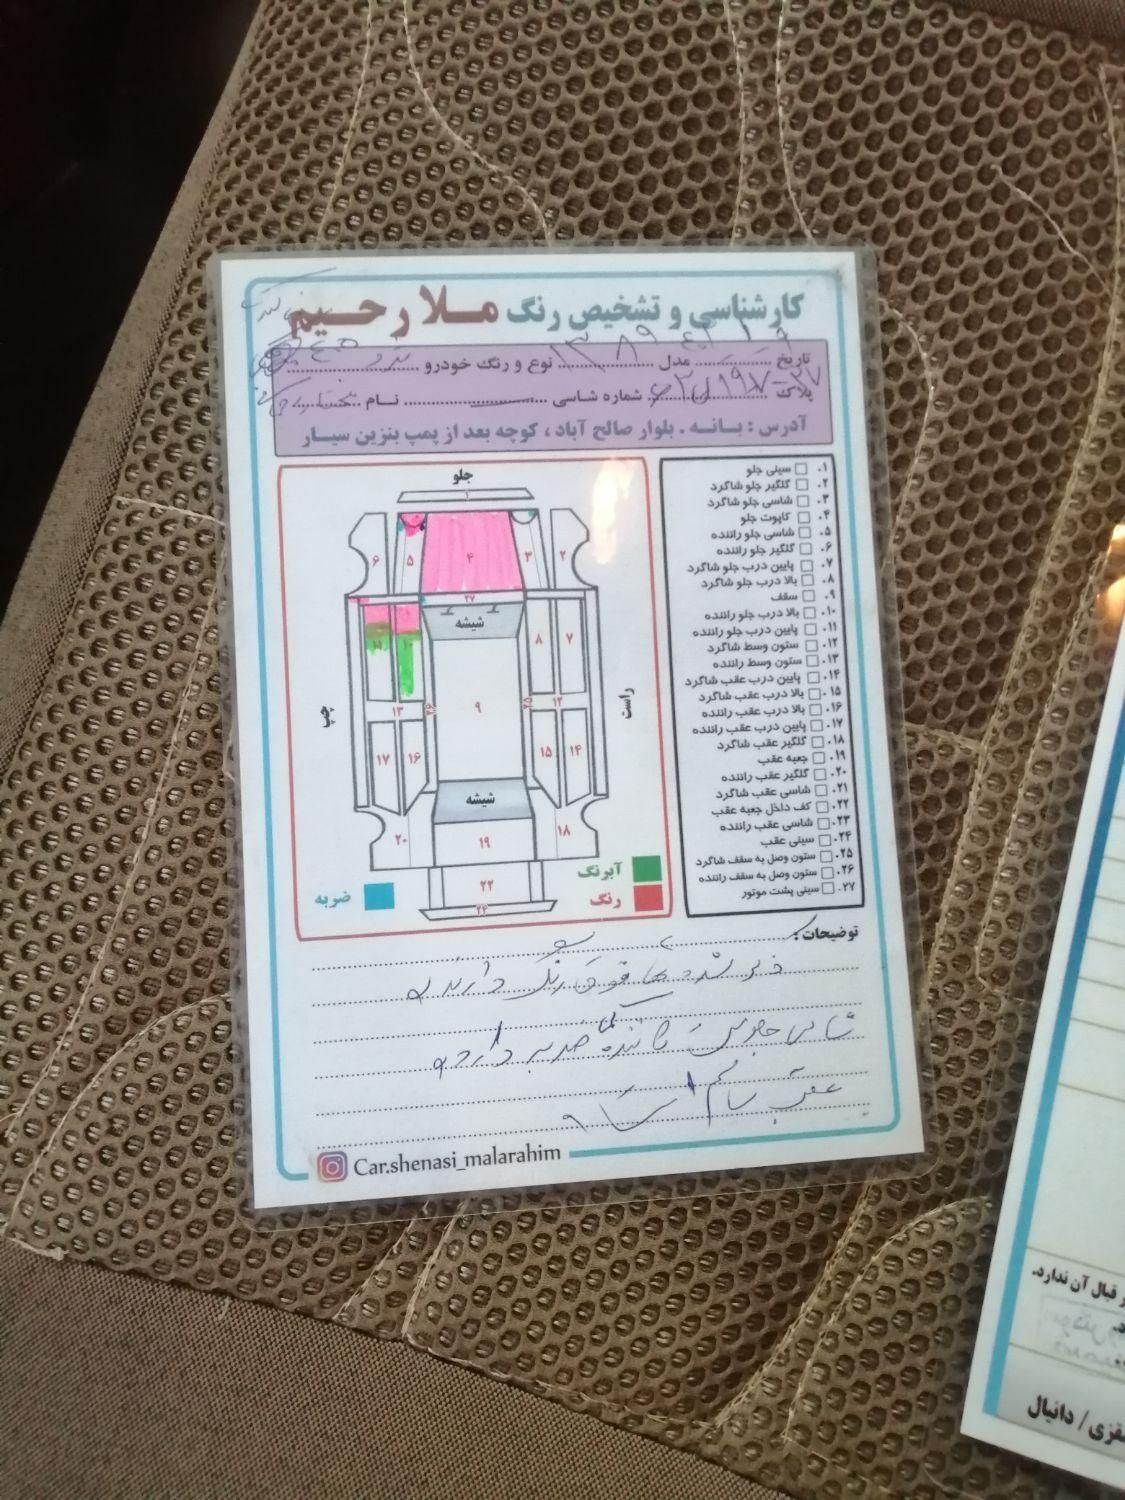 کارشناسی و تشخیص رنگ ملا رحیم
تاریخ مدل ۱۳۸۹ نوع و رنگ خودرو
پلاک شماره شاسی نام
آدرس : بانه . بلوار صالح آباد ، کوچه بعد از پمپ بنزین سیار
۰۱ سینی جلو
۰۲ گلگیر جلو شاگرد
۰۳ شاسی جلو شاگرد
۰۴ کاپوت جلو
۰۵ شاسی جلو راننده
۰۶ گلگیر جلو راننده
۰۷ پایین درب جلو شاگرد
۰۸ بالا درب جلو شاگرد
۰۹ سقف
۰۱۰ بالا درب جلو راننده
۰۱۱ پایین درب جلو راننده
۰۱۲ ستون وسط شاگرد
۰۱۳ ستون وسط راننده
۰۱۴ پایین درب عقب شاگرد
۰۱۵ بالا درب عقب شاگرد
۰۱۶ بالا درب عقب راننده
۰۱۷ پایین درب عقب راننده
۰۱۸ گلگیر عقب شاگرد
۰۱۹ جعبه عقب
۰۲۰ گلگیر عقب راننده
۰۲۱ شاسی عقب شاگرد
۰۲۲ کف داخل جعبه عقب
۰۲۳ شاسی عقب راننده
۰۲۴ سینی عقب
۰۲۵ ستون وصل به سقف شاگرد
۰۲۶ ستون وصل به سقف راننده
۰۲۷ سینی پشت موتور
جلو
۱
۶ ۵ ۴ ۳ ۲
۲۷
شیشه
۱۱ ۱۰ ۸ ۷
چپ ۱۳ ۲۶ ۹ ۲۵ ۱۲ راست
۱۷ ۱۶ ۱۵ ۱۴
شیشه
۲۰ ۱۹ ۱۸
۲۲
۲۴
آبرنگ
رنگ
ضربه
توضیحات :
فوق رنگ دارند
ضربه دارد
عقب سالم است
Car.shenasi_malarahim
قبال آن ندارد.
سقزی / دانیال